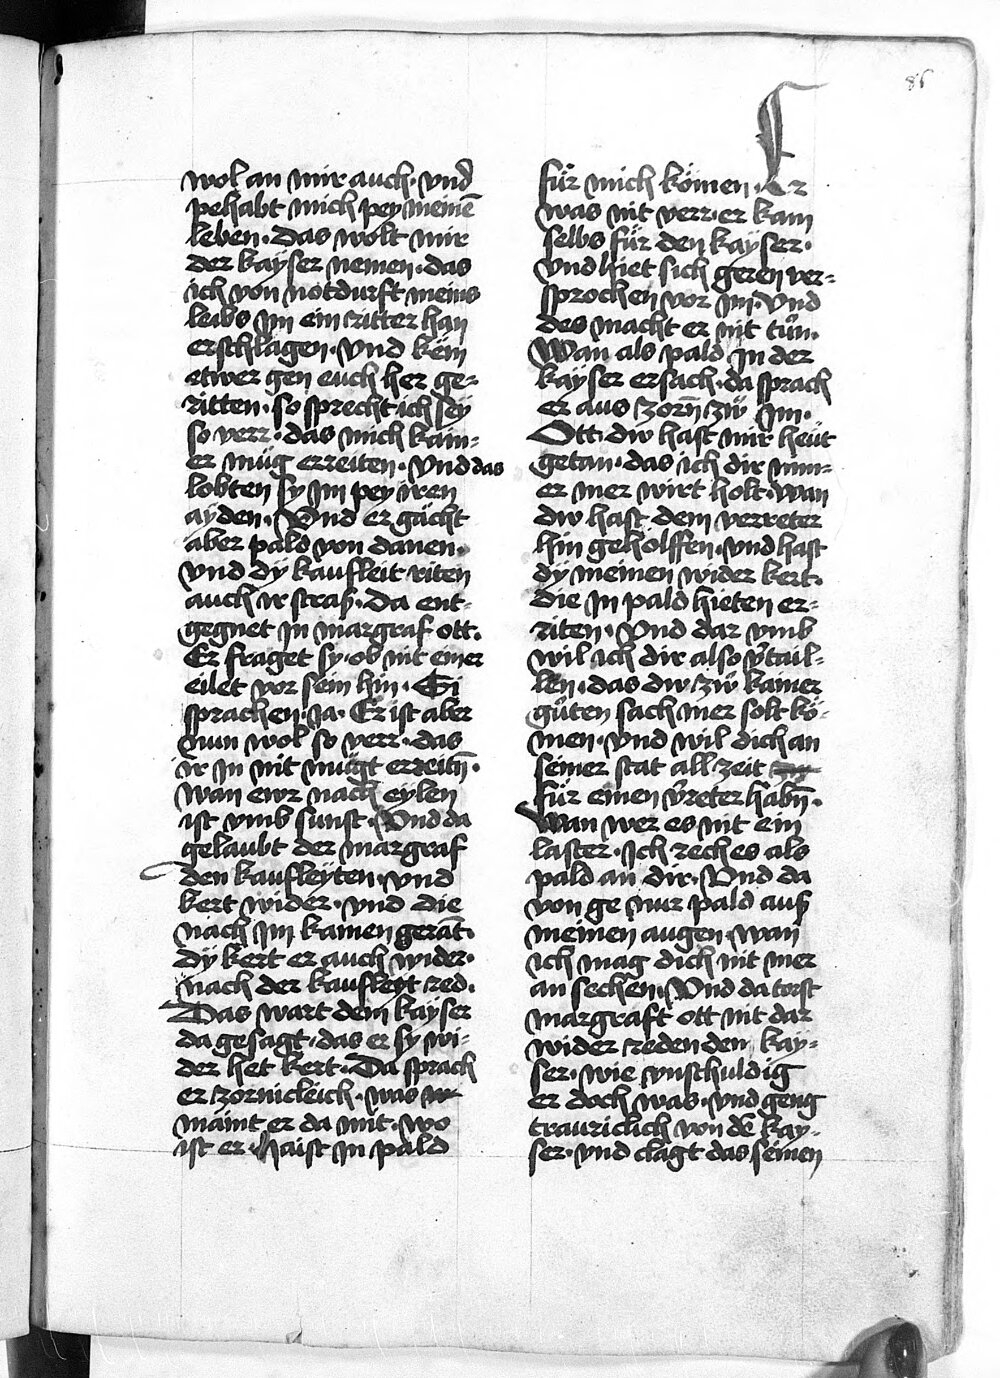 86
wol an mir auch · vnd
pehabt mich pey meinē
leben · Das wolt mir
der kayser nemen · das
ich von notdurft meins
leibs jm ein ritter han
erschlagen · vnd köm
etwer gen euch her ge=
ritten · so sprecht ich seÿ
so verr · das mich kain=
er müg erreiten · Vnd das
lobten sy jm pey iren
ayden · Vnd er gächt
aber pald von danen ·
vnd dÿ kaufleit riten
auch ir straß · Da ent=
gegnet jn margraf ott ·
Er fraget sy · ob nit einer
eilet vor sein hin · Si
sprachen · Ja · Er ist aber
nun wol so verr · das
ir jn nit mügt erreitn̄ ·
wan ewr nach eylen
ist vmb sunst · Vnd da
gelaubt der margraf
den kaufleÿten · vnd
kert wider · vnd die
nach jm kamen gerāt ·
dÿ kert er auch wider ·
nach der kaufleyt red ·
Das wart dem kayser
da gesagt · das er sy wi=
der het kert · Da sprach
er zornickleich · was
maint er da mit · wo
ist er · haist jn pald
für mich kömen · Er
was nit verr · er kam
selbs für den kaÿser ·
vnd hiet sich geren ver=
sprochen vor jm · Vnd
des macht er nit tün ·
Wan als pald jn der
kaÿser ersach · da sprach
er aus zorn̄ zü jm ·
Ott dw hast mir heüt
getan · das ich dir nim=
er mer wirt holt · wan
dw hast dem verreter
hin geholffen · vnd hast
dÿ meinen wider kert ·
die jn pald hieten er=
riten · Vnd dar vmb
wil ich dir also v̄tail=
len · das dw zü kainer
güten sach mer solt kö=
men · vnd wil dich an
seiner stat all zeit
für einen v̄reter habn̄ ·
Wan wer es nit ein
laster · Ich rech es als
pald an dir · Vnd da
von ge nur pald auß
meinen augen · wan
ich mag dich nit mer
an sechen · Vnd da torst
margraft ott nit dar
wider reden dem kay=
ser · wie vnschuldig
er doch was · vnd geng
traurickich von dē kay=
ser · vnd clagt das seinen